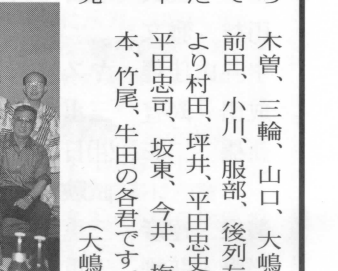 木曽、三輪、山口、大嶋
前田、小川、服部、後列左
より村田、坪井、平田忠史
平田忠司、坂東、今井、梅
本、竹尾、牛田の各君です。
（大嶋